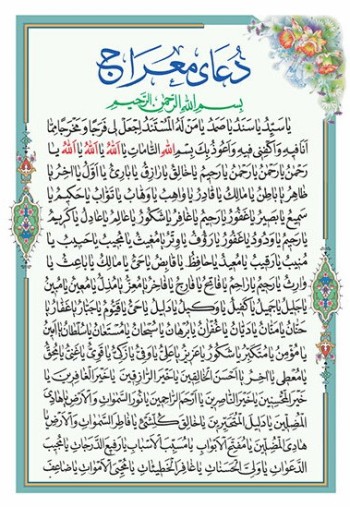 دُعای معراج
بِسمِ اللهِ الرَّحمٰنِ الرَّحیمِ
یا سَیِّدُ یا سَنَدُ یا صَمَدُ یا مَن لَهُ المُستَنَدُ اِجعَل لی فَرَجًا وَ مَخرَجًا مِمّا
اَنَا فیهِ وَ اکفِنی فیهِ وَ اَعُوذُ بِکَ بِسمِ اللهِ التّامّاتِ یا اَللهُ یا اَللهُ یا اَللهُ یا
رَحمٰنُ یا رَحمٰنُ یا رَحیمُ یا خالِقُ یا رازِقُ یا بارِئُ یا اَوَّلُ یا اخِرُ یا
ظاهِرُ یا باطِنُ یا مالِکُ یا قادِرُ یا واهِبُ یا وَهّابُ یا تَوّابُ یا حَکیمُ یا
سَمیعُ یا بَصیرُ یا غَفُورُ یا رَحیمُ یا غافِرُ یا شَکُورُ یا عالِمُ یا عادِلُ یا کَریمُ
یا رَحیمُ یا وَدُودُ یا غَفُورُ یا رَؤُفُ یا وِترُ یا مُغیثُ یا مُجیبُ یا حَبیبُ یا
مُنیبُ یا رَقیبُ یا مُعیدُ یا حافِظُ یا قابِضُ یا حَیُّ یا مالِکُ یا باعِثُ یا
وارِثُ یا رَحیمُ یا راحِمُ یا فاتِحُ یا فارِجُ یا فاخِرُ یا مُعِزُّ یا مُذِلُّ یا مُعینُ یا مُبینُ
یا جَلیلُ یا جَمیلُ یا کَفیلُ یا وَکیلُ یا دَلیلُ یا حَیُّ یا قَیُّومُ یا جَبّارُ یا غَفّارُ یا
حَنّانُ یا مَنّانُ یا دَیّانُ یا غُفرانُ یا بُرهانُ یا سُبحانُ یا مُستَعانُ یا سُلطانُ یا اَمینُ
یا مُؤمِنُ یا مُتَکَبِّرُ یا شَکُورُ یا عَزیزُ یا عَلِیُّ یا وَفِیُّ یا زَکِیُّ یا قَوِیُّ یا غَنِیُّ یا مُحِقُّ
یا مُعطی یا اخِرُ یا اَحسَنَ الخالِقینَ یا خَیرَ الرّازِقینَ یا خَیرَ الغافِرینَ یا
خَیرَ المُحسِنینَ یا خَیرَ النّاصِرینَ یا اَرحَمَ الرّاحِمینَ یا نُورَ السَّمٰواتِ وَ الاَرَضینَ یا هادِیَ
المُضِلّینَ یا دَلیلَ المُتَحَیِّرینَ یا خالِقَ کُلِّ شَیءٍ یا فاطِرَ السَّمٰواتِ وَ الاَرضِ یا
هادِیَ المُضِلّینَ یا مُفَتِّحَ الاَبوابِ یا مُسَبِّبَ الاَسبابِ یا رَفیعَ الدَّرَجاتِ یا مُجیبَ
الدَّعَواتِ یا وَلِیَّ الحَسَناتِ یا غافِرَ الخَطیئاتِ یا مُحیِیَ الاَمواتِ یا ضاعِفَ